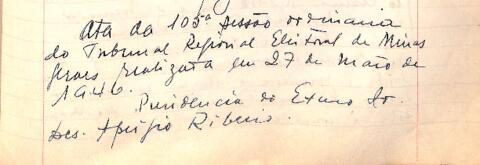 Ata da 105ª sessão ordinaria
do Tribunal Regional Eleitoral de Minas
Geraes realizada em 27 de maio de
1946.
Presidencia do Exmo Sr.
Des. Aprigio Ribeiro.